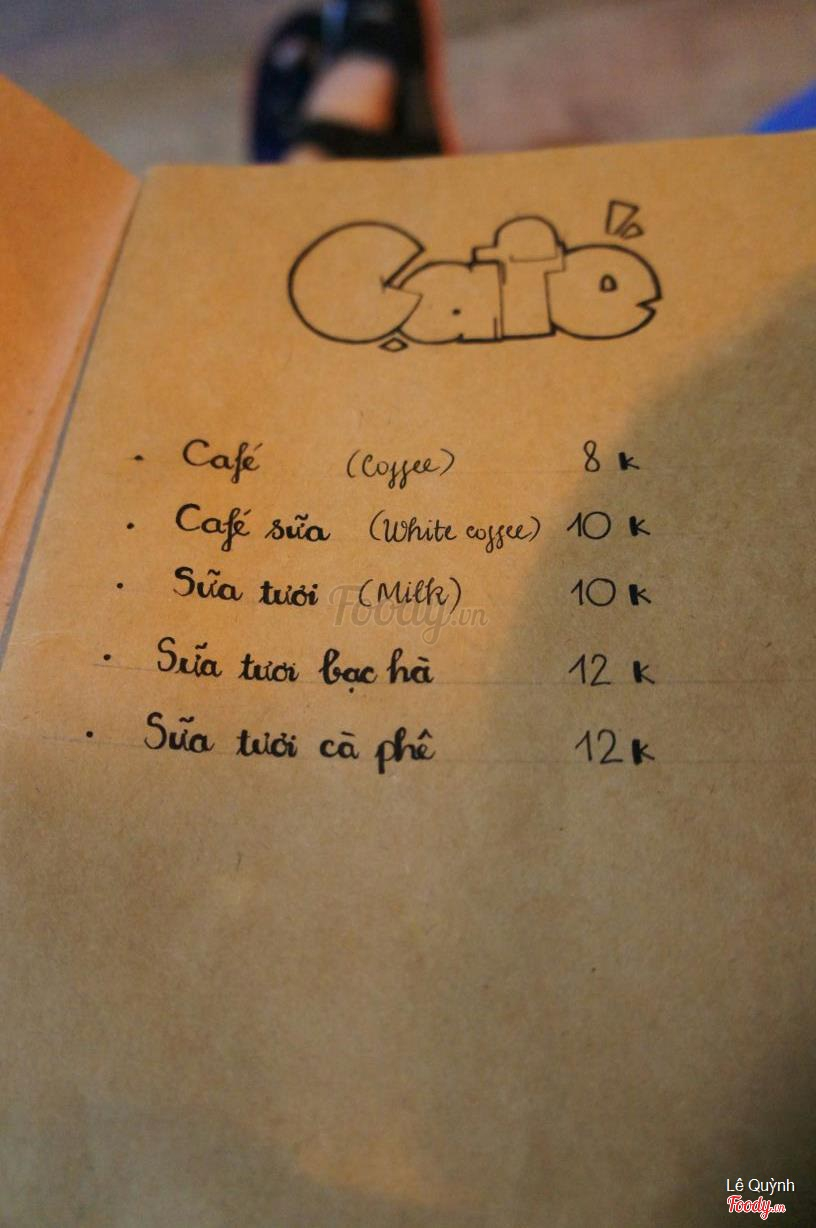 Café
• Café (Coffee) 8 K
• Café sữa (White coffee) 10 K
• Sữa tươi (Milk) 10 K
• Sữa tươi bạc hà 12 K
• Sữa tươi cà phê 12 K
Foody.vn
Lê Quỳnh
Foody.vn